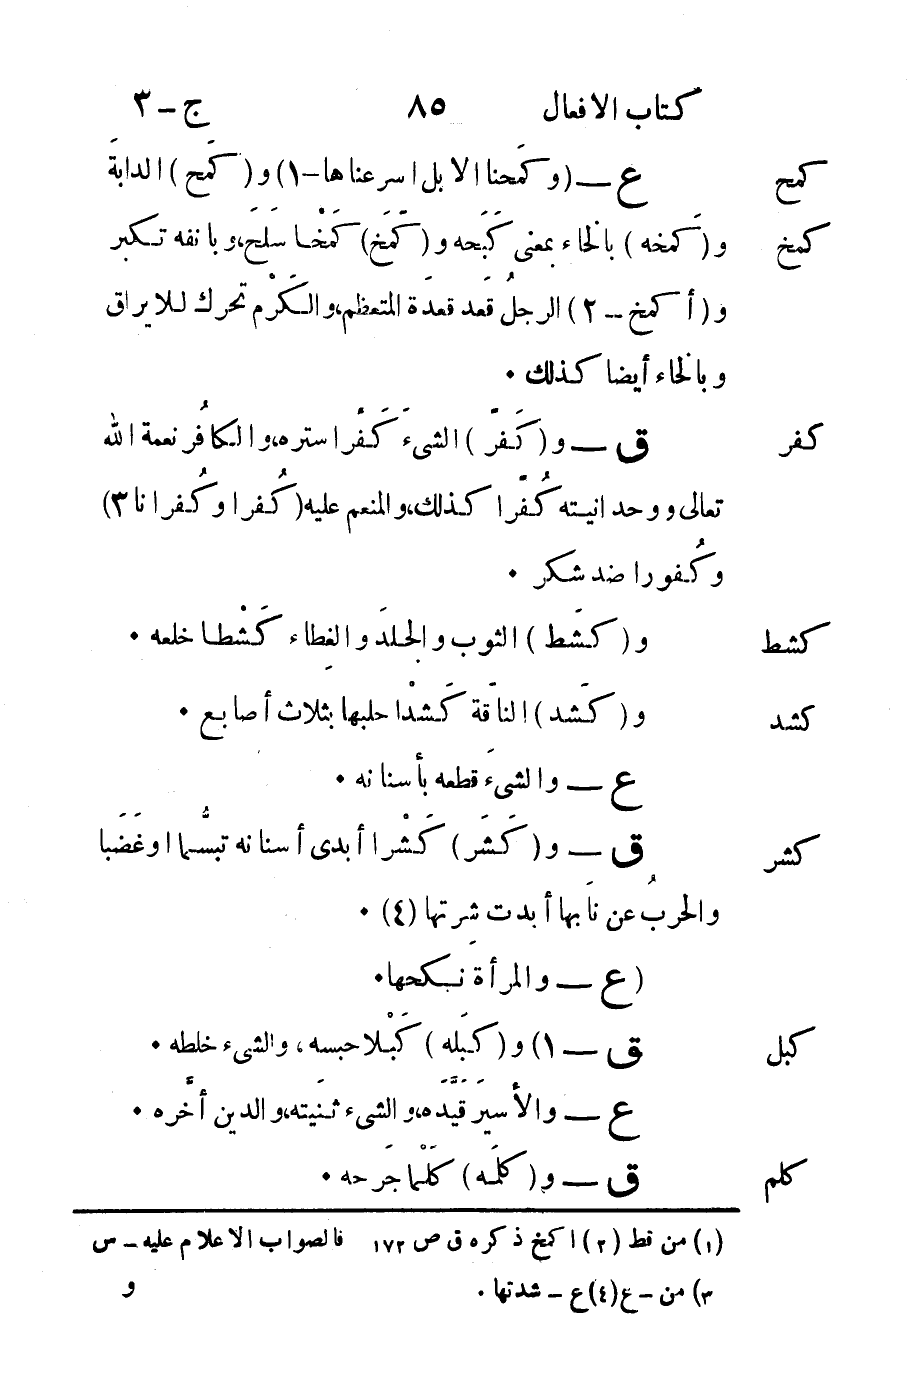 كتاب الافعال ٨٥ ج – ٣
كمح ع — (وكَمَحنا الابل اسرعناها – ١) و (كَمَح) الدابةَ
كمخ و (كَمَخه) بالخاء بمعنى كَبَحه و (كَمَّخ) كَمْخا سَلَحَ، وبانفه تكبر
و (أكمخ – ٢) الرجلُ قعَد قعدَة المتعظم، والكَرْم تحرك للايراق
وبالحاء أيضا كذلك •
كفر ق — و (كَفَر) الشىءَ كَفْرا ستره، والكافُر نعمة الله
تعالى ووحدانيته كُفْرا كذلك، والمنعم عليه (كُفرا وكُفرانا ٣)
وكُفورا ضد شكر •
كشط و (كشَط) الثوب والجلدَ والغطاء كَشْطا خلعه •
كشد و (كشَد) الناقة كَشْدا حلبها بثلاث أصابع •
ع — والشىءَ قطعه بأسنانه •
كشر ق — و (كَشَر) كَشْرا أبدى أسنانه تبسُّما اوغَضَبا
والحربُ عن نابها أبدت شرتها (٤) •
(ع — والمرأة نكحها •
كبل ق — ١) و (كبَله) كَبْلا حبسه، والشىء خلطه •
ع — والأسيرَ قَيَّدَه، والشىء ثَنيَته، والدين أخَّره •
كلم ق — و (كلَمه) كَلْما جَرحه •
(١) من قط (٢) اكمخ ذكره ق ص ١٧٢ فالصواب الاعلام عليه – س
٣) من – ع (٤) ع – شدتها •
و